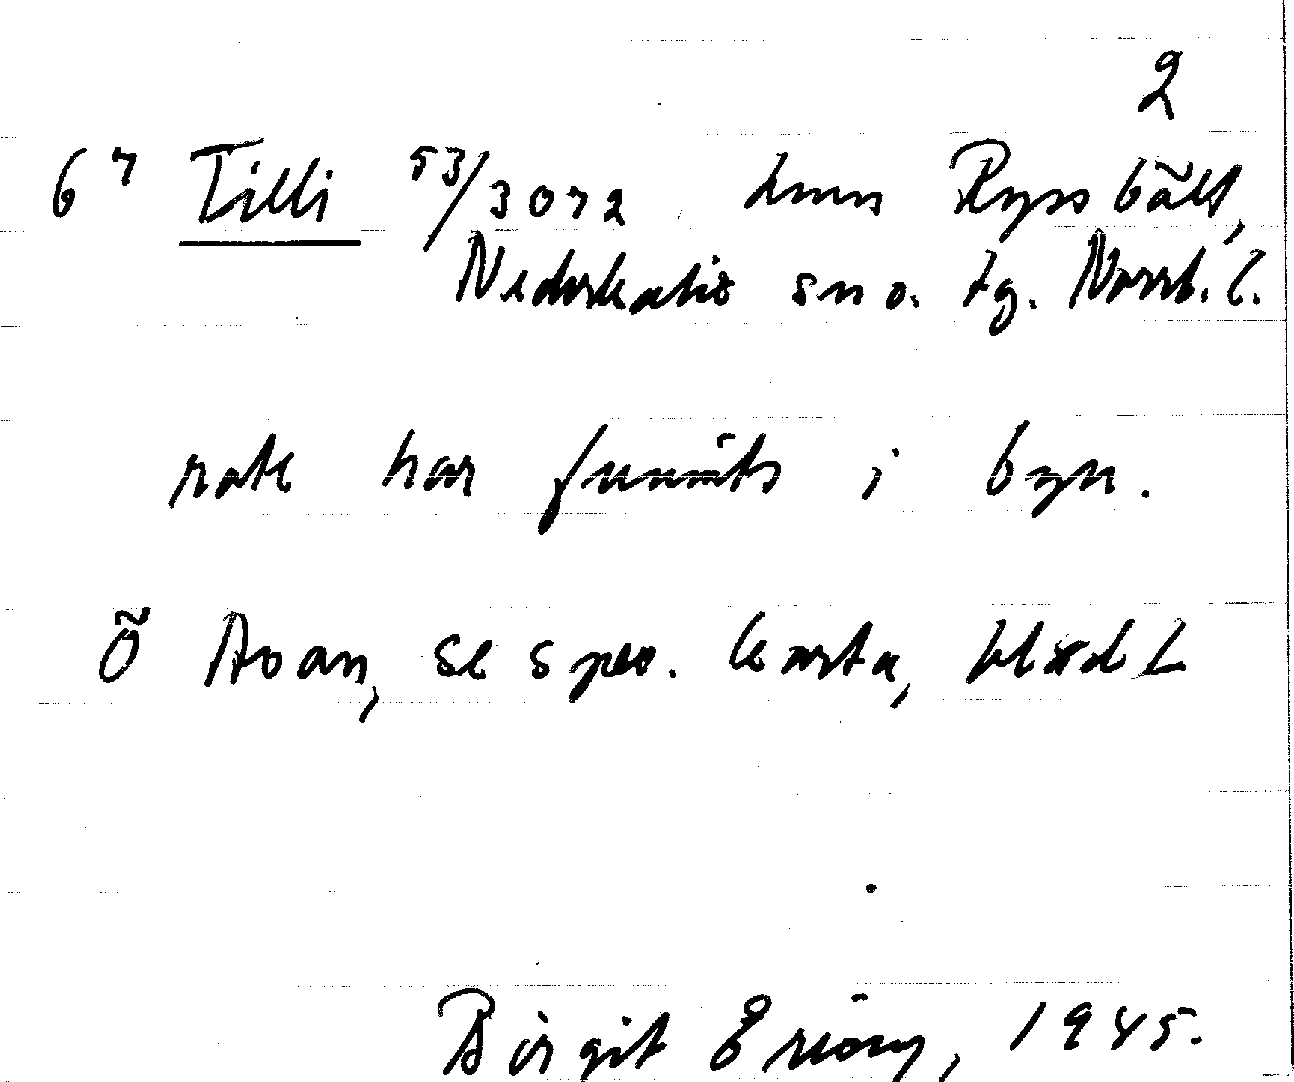 2
67 Tilli 53/3072 hmn Ryssbält,
Nederkalix sn o. tg. Norrb. l.
rote har funnits i byn.
Ö Åvan, se spec. karta, blad L
Birgit Eriöny, 1945.